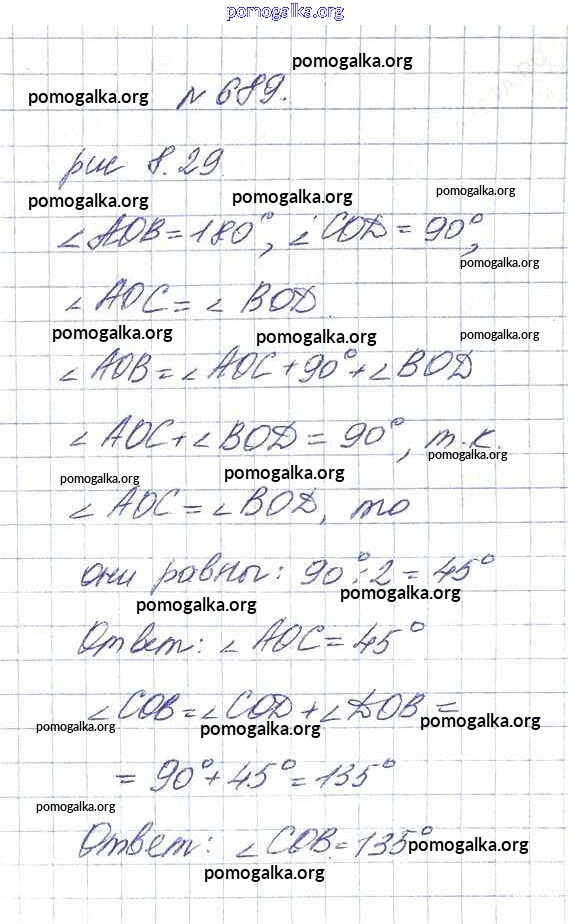 pomogalka.org
pomogalka.org
pomogalka.org № 689.
рис 8.29
pomogalka.org
pomogalka.org pomogalka.org
∠AOB = 180°, ∠COD = 90°,
pomogalka.org
∠AOC = ∠BOD.
pomogalka.org pomogalka.org pomogalka.org
∠AOB = ∠AOC + 90° + ∠BOD
∠AOC + ∠BOD = 90°, т.к.
pomogalka.org
pomogalka.org pomogalka.org
∠AOC = ∠BOD, то
они равны: 90° : 2 = 45°
pomogalka.org pomogalka.org
Ответ: ∠AOC = 45°
∠COB = ∠COD + ∠DOB =
pomogalka.org pomogalka.org pomogalka.org
= 90° + 45° = 135°
pomogalka.org
Ответ: ∠COB = 135° pomogalka.org
pomogalka.org